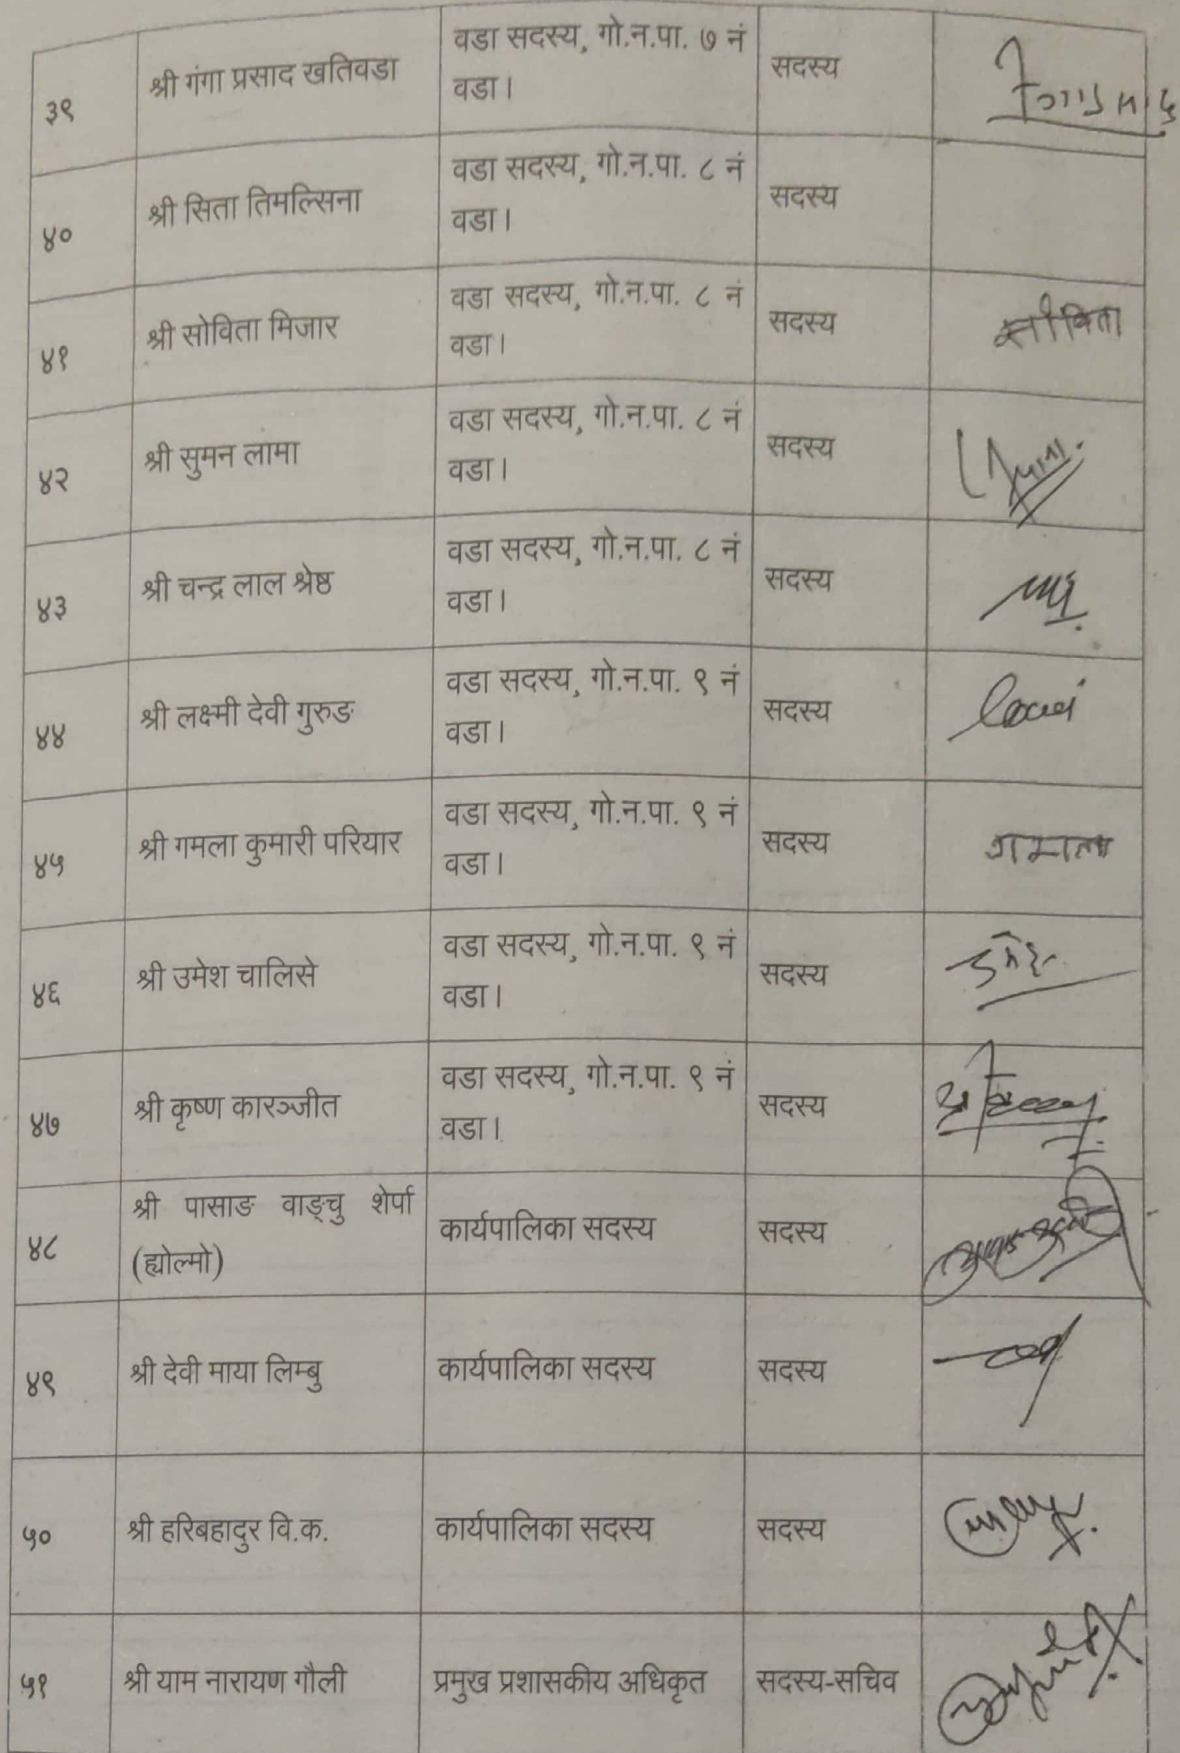 ३९ श्री गंगा प्रसाद खतिवडा वडा सदस्य, गो.न.पा. ७ नं सदस्य
वडा।
४० श्री सिता तिमल्सिना वडा सदस्य, गो.न.पा. ८ नं सदस्य
वडा।
४१ श्री सोविता मिजार वडा सदस्य, गो.न.पा. ८ नं सदस्य सोविता
वडा।
४२ श्री सुमन लामा वडा सदस्य, गो.न.पा. ८ नं सदस्य
वडा।
४३ श्री चन्द्र लाल श्रेष्ठ वडा सदस्य, गो.न.पा. ८ नं सदस्य
वडा।
४४ श्री लक्ष्मी देवी गुरुङ वडा सदस्य, गो.न.पा. ९ नं सदस्य
वडा।
४५ श्री गमला कुमारी परियार वडा सदस्य, गो.न.पा. ९ नं सदस्य गमला
वडा।
४६ श्री उमेश चालिसे वडा सदस्य, गो.न.पा. ९ नं सदस्य
वडा।
४७ श्री कृष्ण कारञ्जीत वडा सदस्य, गो.न.पा. ९ नं सदस्य
वडा।
४८ श्री पासाङ वाङ्चु शेर्पा कार्यपालिका सदस्य सदस्य
(ह्योल्मो)
४९ श्री देवी माया लिम्बु कार्यपालिका सदस्य सदस्य
५० श्री हरिबहादुर वि.क. कार्यपालिका सदस्य सदस्य
५१ श्री याम नारायण गौली प्रमुख प्रशासकीय अधिकृत सदस्य-सचिव